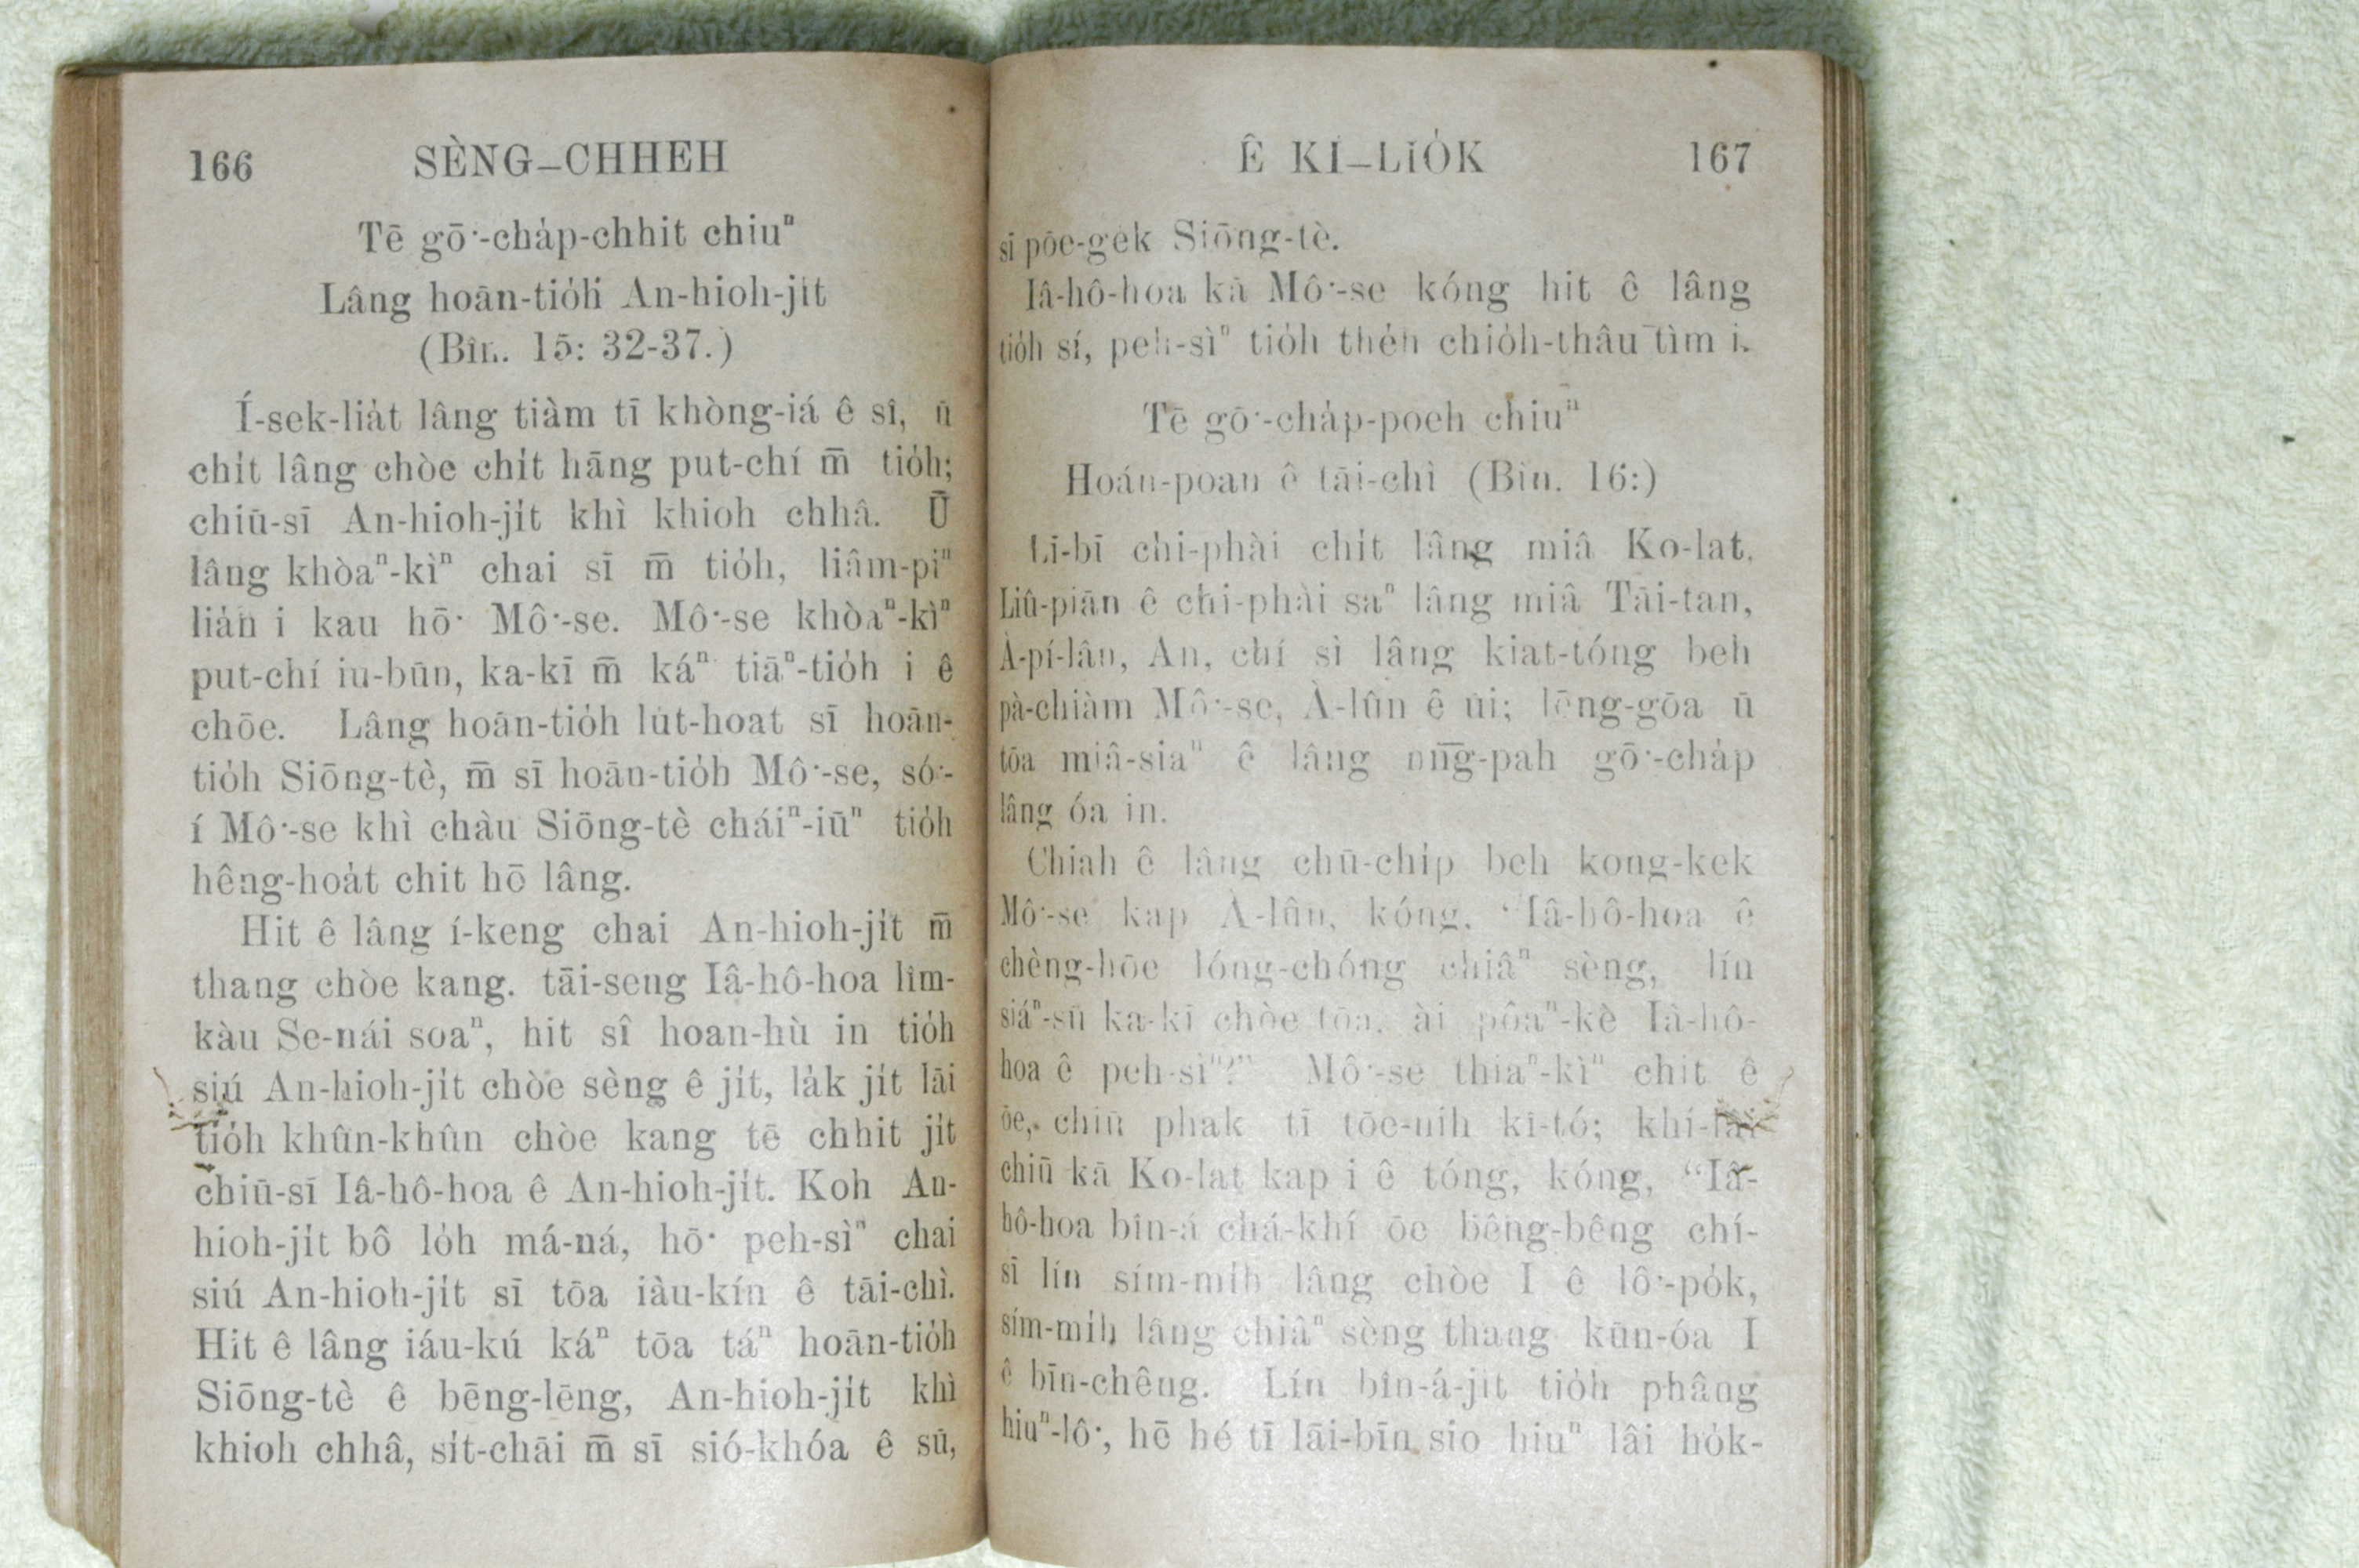 166 SÈNG-CHHEH
Tē gō͘-cha̍p-chhit chiuⁿ
Lâng hoān-tio̍h An-hioh-ji̍t
(Bîn. 15: 32-37.)
Í-sek-lia̍t lâng tiàm tī khòng-iá ê sî, ū
chi̍t lâng chòe chi̍t hāng put-chí m̄ tio̍h;
chiū-sī An-hioh-ji̍t khì khioh chhâ. Ū
lâng khòaⁿ-kìⁿ chai sī m̄ tio̍h, liâm-piⁿ
lia̍h i kau hō͘ Mô͘-se. Mô͘-se khòaⁿ-kìⁿ
put-chí iu-būn, ka-kī m̄ káⁿ tiāⁿ-tio̍h i ê
chōe. Lâng hoān-tio̍h lu̍t-hoat sī hoān-
tio̍h Siōng-tè, m̄ sī hoān-tio̍h Mô͘-se, só͘-
í Mô͘-se khì chàu Siōng-tè cháiⁿ-iūⁿ tio̍h
hêng-hoa̍t chit hō lâng.
Hit ê lâng í-keng chai An-hioh-ji̍t m̄
thang chòe kang. tāi-seng Iâ-hô-hoa lîm-
kàu Se-nái soaⁿ, hit sî hoan-hù in tio̍h
siú An-hioh-ji̍t chòe sèng ê ji̍t, la̍k ji̍t lāi
tio̍h khûn-khûn chòe kang tē chhit ji̍t
chiū-sī Iâ-hô-hoa ê An-hioh-ji̍t. Koh An-
hioh-ji̍t bô lo̍h má-ná, hō͘ peh-sìⁿ chai
siú An-hioh-ji̍t sī tōa iàu-kín ê tāi-chì.
Hit ê lâng iáu-kú káⁿ tōa táⁿ hoān-tio̍h
Siōng-tè ê bēng-lēng, An-hioh-ji̍t khì
khioh chhâ, si̍t-chāi m̄ sī sió-khóa ê sū,
Ê KÌ-LIO̍K 167
sī pōe-ge̍k Siōng-tè.
Iâ-hô-hoa kā Mô͘-se kóng hit ê lâng
tio̍h sí, peh-sìⁿ tio̍h the̍h chio̍h-thâu tìm i.
Tē gō͘-cha̍p-poeh chiuⁿ
Hoán-poan ê tāi-chì (Bîn. 16:)
Lī-bī chi-phài chi̍t lâng miâ Ko-lat,
Liû-piān ê chi-phài saⁿ lâng miâ Tāi-tan,
À-pí-lân, An, chí sì lâng kiat-tóng beh
pà-chiàm Mô͘-se, À-lûn ê ūi; lēng-gōa ū
tōa miâ-siaⁿ ê lâng nn̄g-pah gō͘-cha̍p
lâng óa in.
Chiah ê lâng chū-chi̍p beh kong-kek
Mô͘-se kap À-lûn, kóng, “Iâ-hô-hoa ê
chèng-hōe lóng-chóng chiâⁿ sèng, lín
siáⁿ-sū ka-kī chòe tōa, ài pôaⁿ-kè Iâ-hô-
hoa ê peh-sìⁿ?” Mô͘-se thiaⁿ-kìⁿ chit ê
ōe, chiū phak tī tōe-nih kî-tó; khí-lâi
chiū kā Ko-lat kap i ê tóng, kóng, “Iâ-
hô-hoa bîn-á chá-khí ōe bêng-bêng chí-
sī lín sím-mi̍h lâng chòe I ê lô͘-po̍k,
sím-mi̍h lâng chiâⁿ sèng thang kūn-óa I
ê bīn-chêng. Lín bîn-á-ji̍t tio̍h phâng
hiuⁿ-lô͘, hē hé tī lāi-bīn sio hiuⁿ lâi ho̍k-